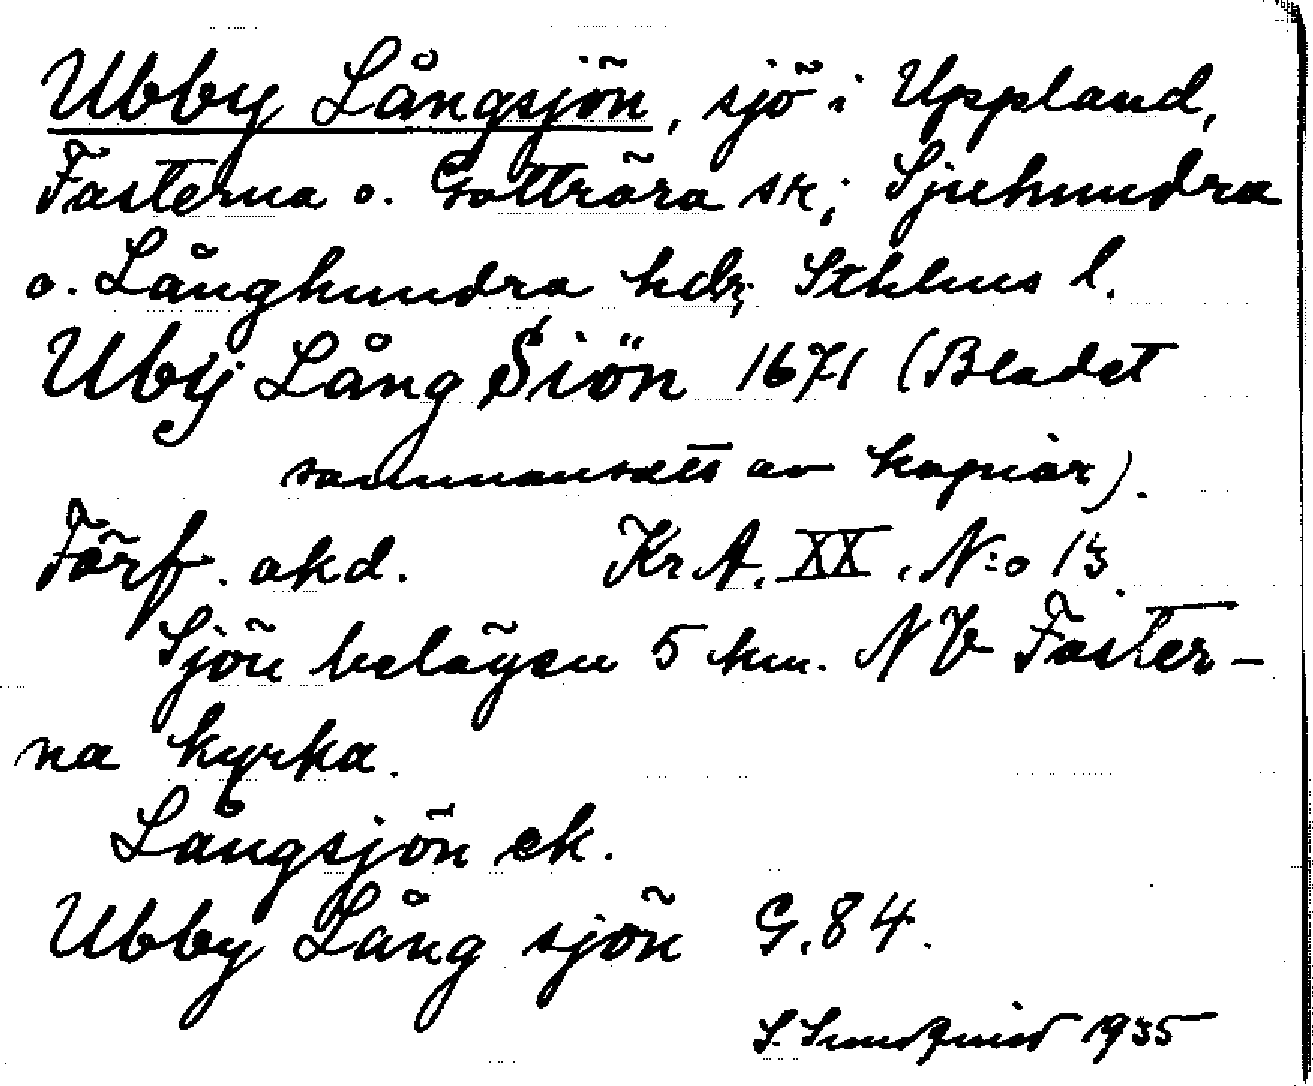 Ubby Långsjön, sjö i Uppland,
Fasterna o. Gottröra sk; Sjuhundra
o. Långhundra hdr; Sthlms l.
Ubÿ Lång Siön 1671 (Bladet
sammansatt av kopior).
Förf. akd. KrA. XX. N:o 13
Sjön belägen 5 km. NV Faster-
na kyrka.
Långsjön ek.
Ubby Lång sjön G. 84.
S. Sundquist 1935